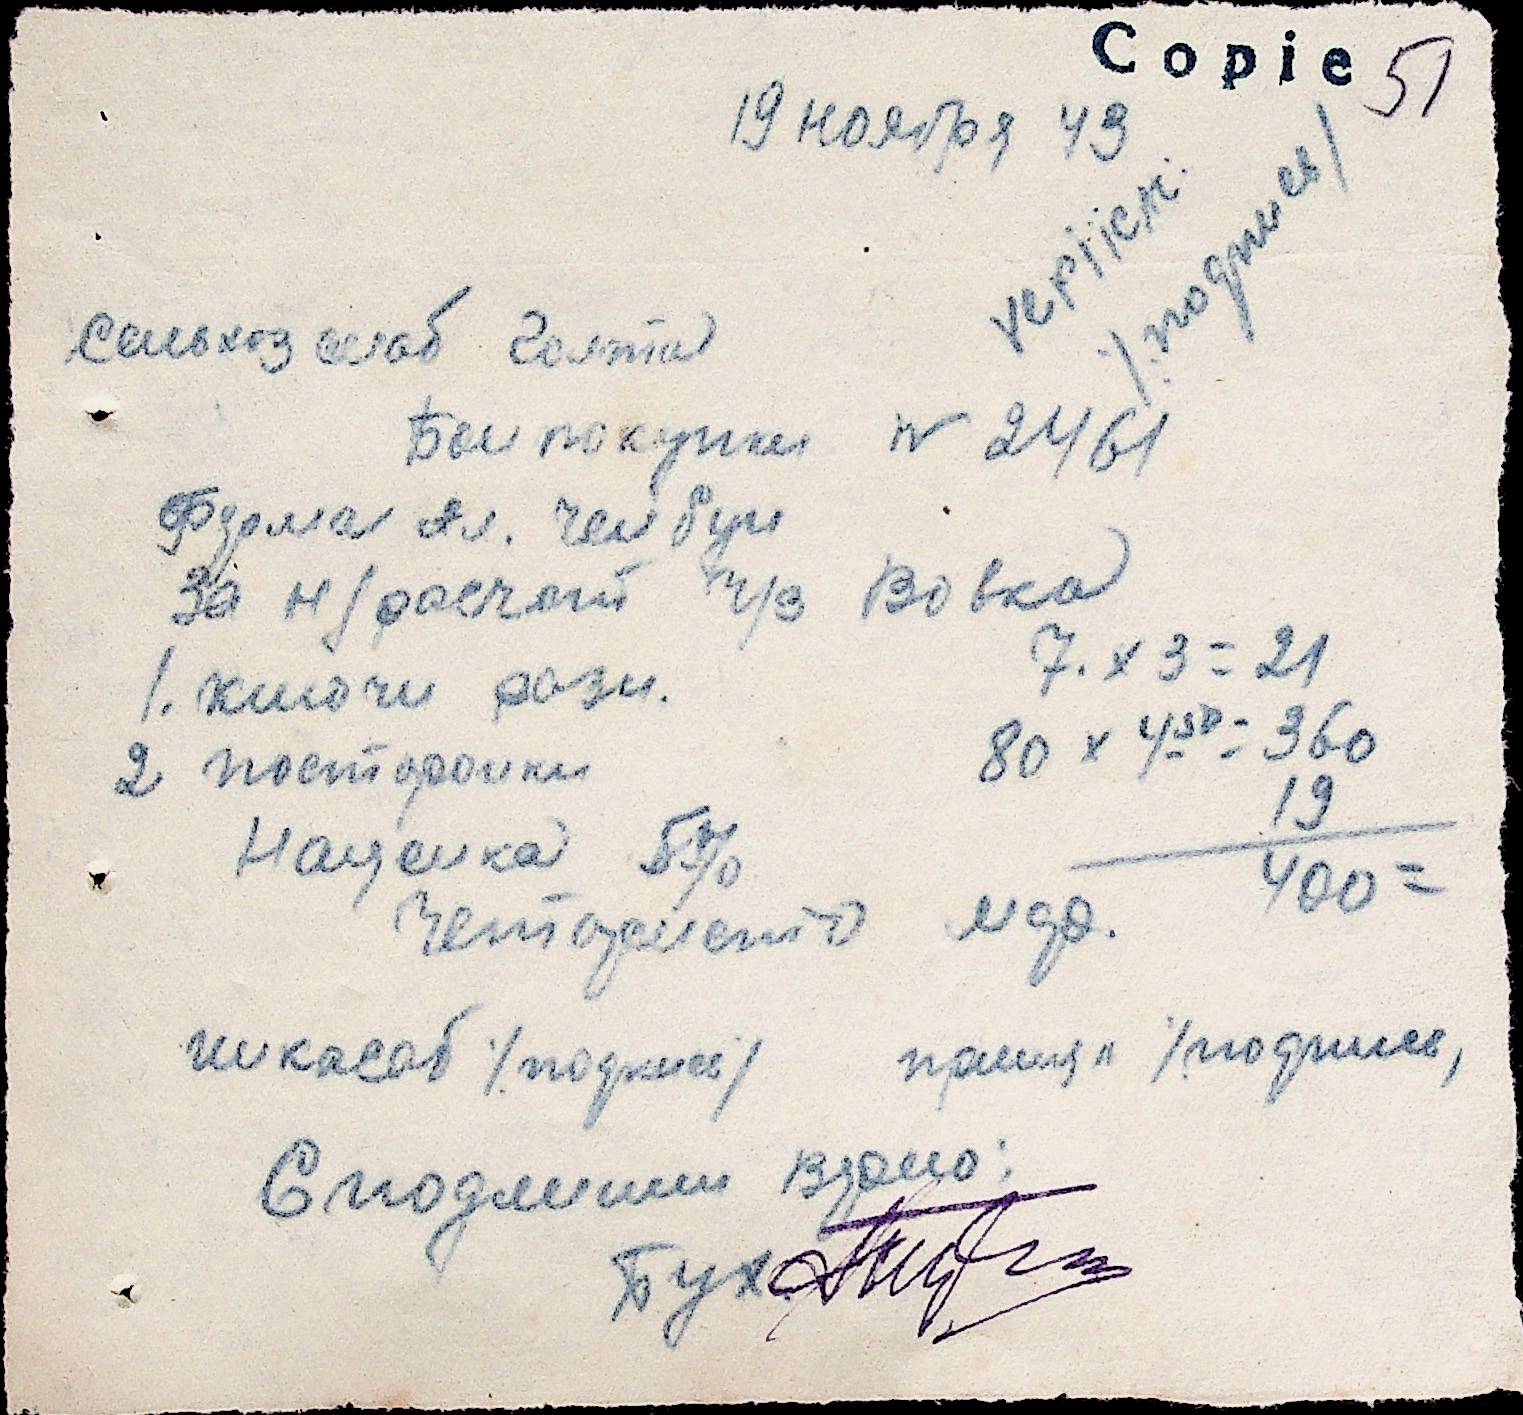 Copie 51
19 ноября 43
verific.
/подпись/
Сельхозснаб Голта
Бон покупки № 2461
Ферма
За н/расчёт ч/з Вовка
1. Ключи разн. 7. x 3 = 21
2 постромки 80 x 4.50 = 360
19
Наценка 5%
400=
Четыреста мар.
Сельхозснаб /подпись/ принял /подпись,
С подлинным верно:
Бух.